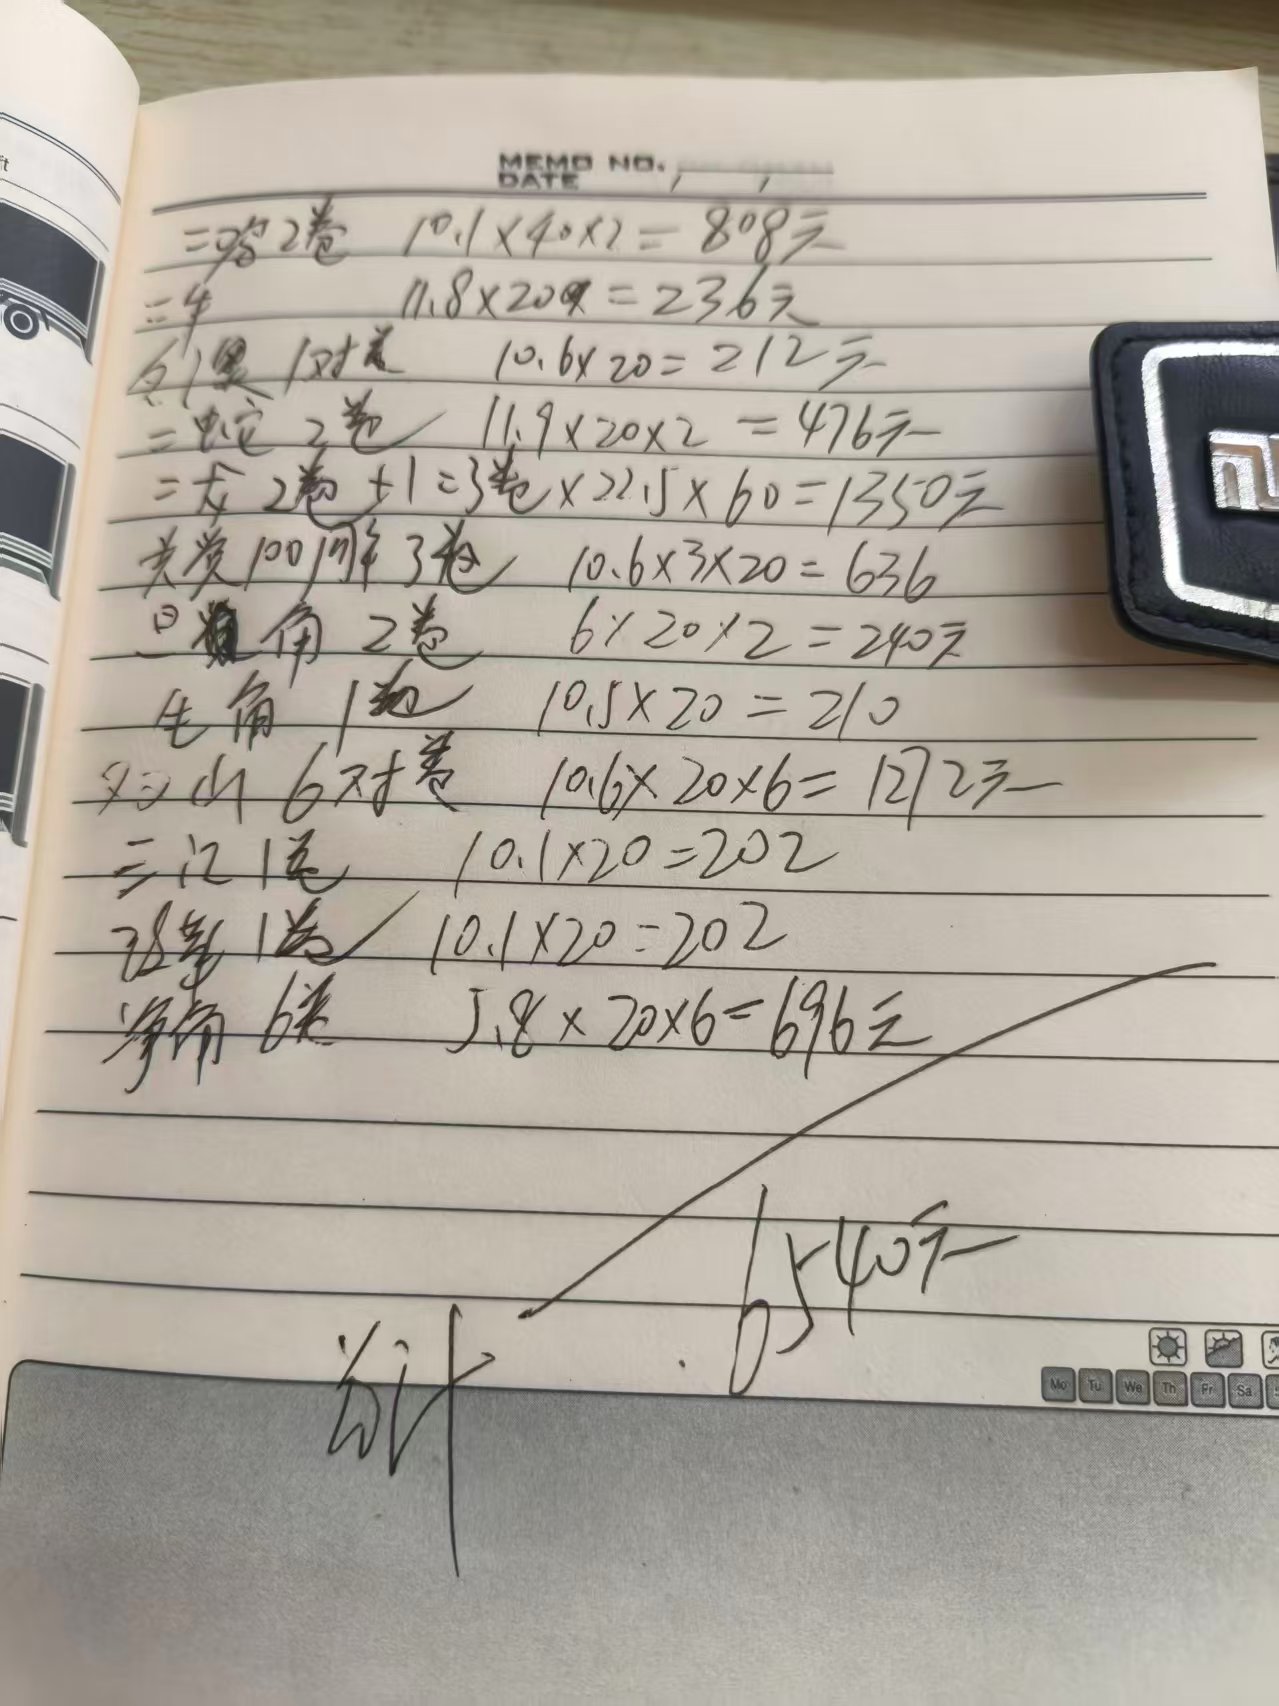 MEMO NO.
DATE
二哈2卷 10.1×40×2=808元
二牛 11.8×20=236元
1对卷 10.6×20=212元
二蛇2卷 11.9×20×2=476元
二龙2卷+1=3卷×22.5×60=1350元
共党100周年3卷 10.6×3×20=636
角2卷 6×20×2=240元
生角1卷 10.5×20=210
山6对卷 10.6×20×6=1272元
三江1卷 10.1×20=202
1卷 10.1×20=202
角6卷 5.8×20×6=696元
6540元
合计
Mo Tu We Th Fr Sa